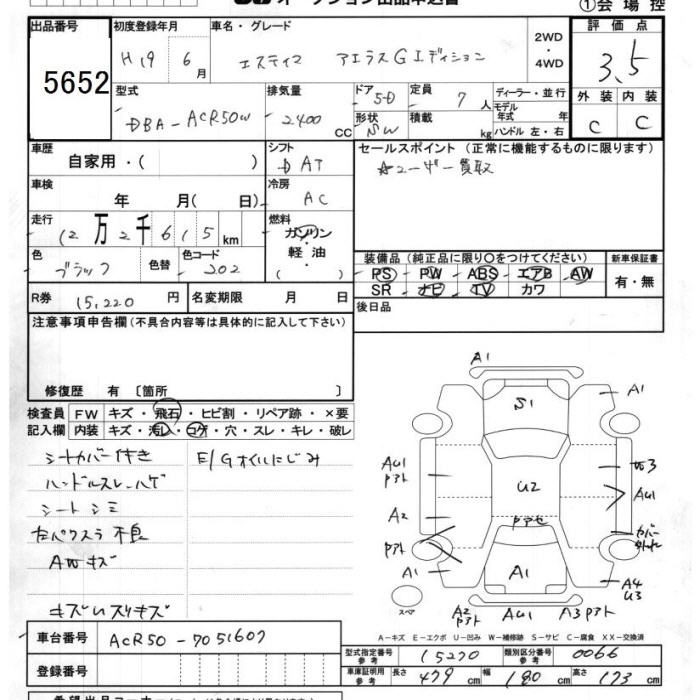 オークション出品申込書 ①会場控
出品番号 5652
初度登録年月 H19 6月
車名・グレード エスティマ アエラスGエディション
2WD・4WD
評価点 3.5
型式 DBA-ACR50W
排気量 2400 CC
ドア 5D
形状 SW
定員 7人
積載 kg
ディーラー・並行
モデル年式 年
ハンドル 左・右
外装 C 内装 C
車歴 自家用・( )
シフト DAT
セールスポイント(正常に機能するものに限ります)
☆ユーザー買取
車検 年 月(日)
冷房 AC
走行 12万2千615km
燃料 ガソリン・軽油・
色 ブラック 色替 色コード 202
装備品(純正品に限り○をつけてください) 新車保証書
PS PW ABS エアB AW 有・無
SR ナビ TV カワ
R券 15,220円 名変期限 月 日
後日品
注意事項申告欄(不具合内容等は具体的に記入して下さい)
修復歴 有〔箇所 〕
検査員記入欄
FW キズ・飛石・ヒビ割・リペア跡・×要
内装 キズ・汚レ・コゲ・穴・スレ・キレ・破レ
シートカバー付き E/Gオイルにじみ
ハンドルスレ・ハゲ
シートシミ
右パワスラ不良
AWキズ
キズUスリキズ
A1
S1 A1
AU1 Pアト U2 U3
A2 AU1
Pアセ カバー外れ
Pアト
A1 A1 A4 U3
スペア A2 Pアト AU1 A3 Pアト
A-キズ E-エクボ U-凹み W-補修跡 S-サビ C-腐食 XX-交換済
車台番号 ACR50-7051607
型式指定番号 参考 15270 類別区分番号 参考 0066
登録番号
車庫証明用 参考 長さ 479cm 幅 180cm 高さ 173cm